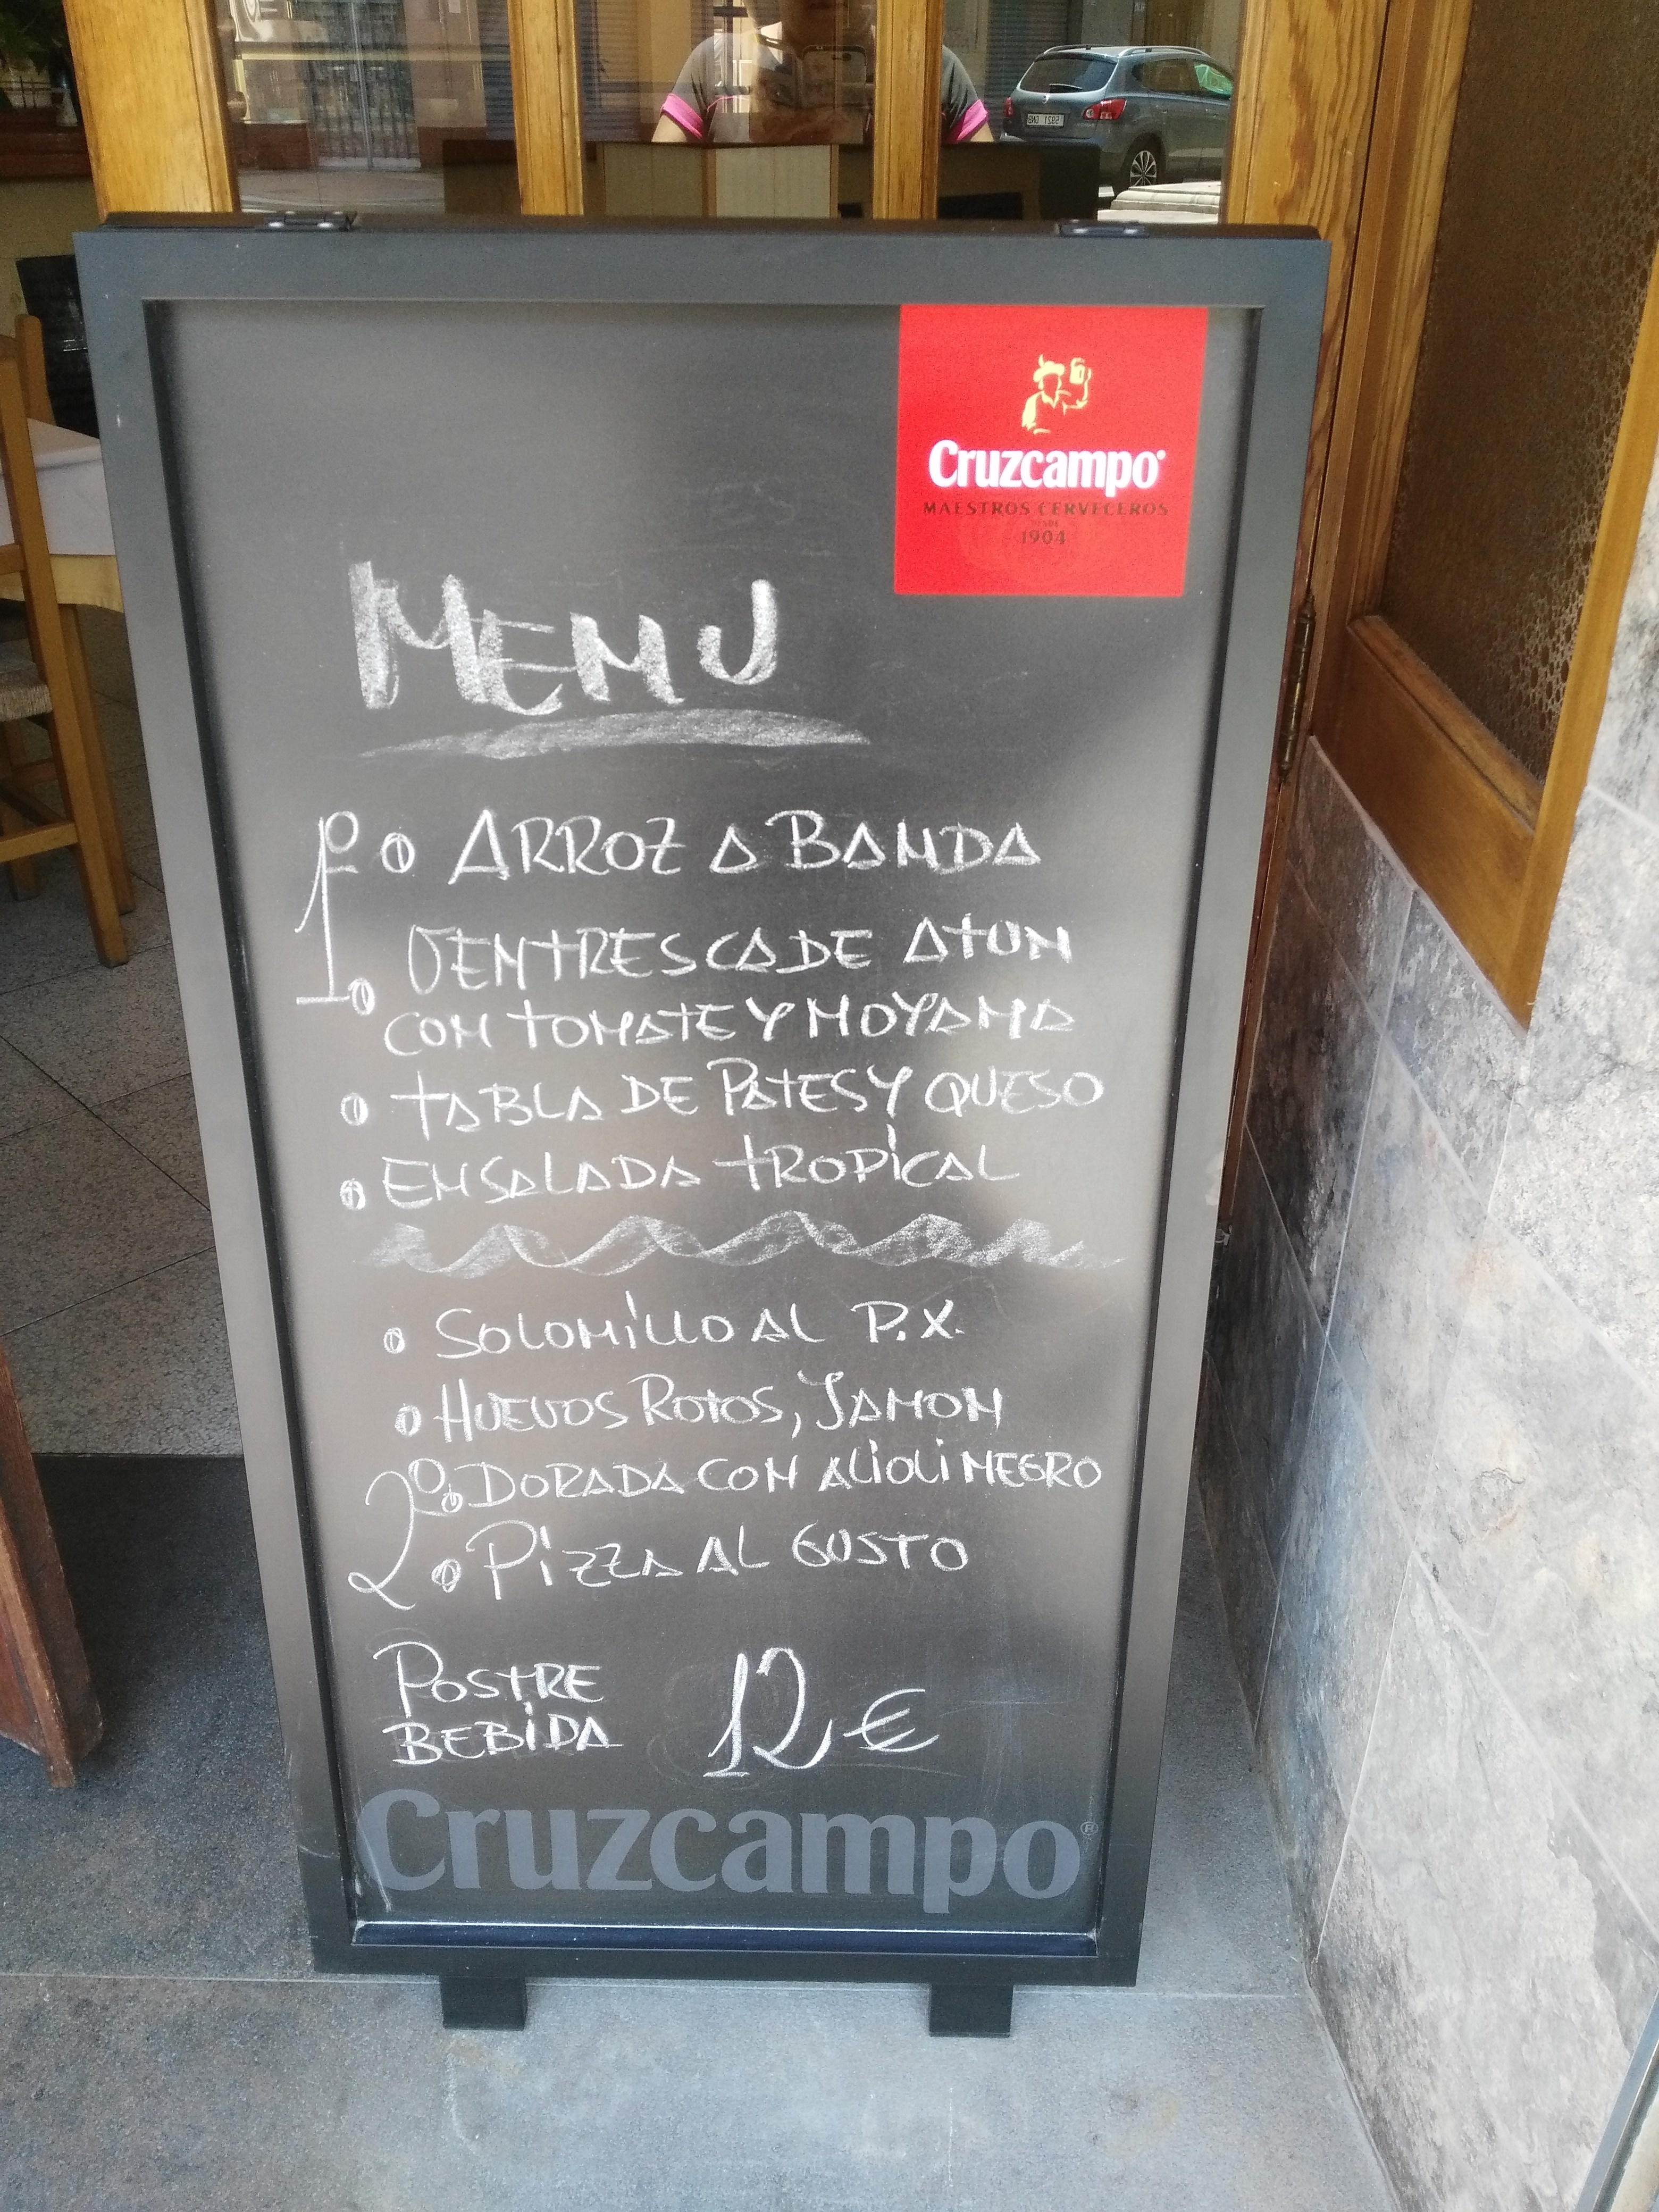 Cruzcampo
MAESTROS CERVECEROS
DESDE
1904
MENU
1º ARROZ A BANDA
VENTRESCA DE ATUN
CON TOMATE Y MOYAMA
TABLA DE PATES Y QUESO
ENSALADA TROPICAL
SOLOMILLO AL P.X.
HUEVOS ROTOS, JAMON
2º DORADA CON ALIOLI NEGRO
PIZZA AL GUSTO
POSTRE
BEBIDA 12 €
Cruzcampo®